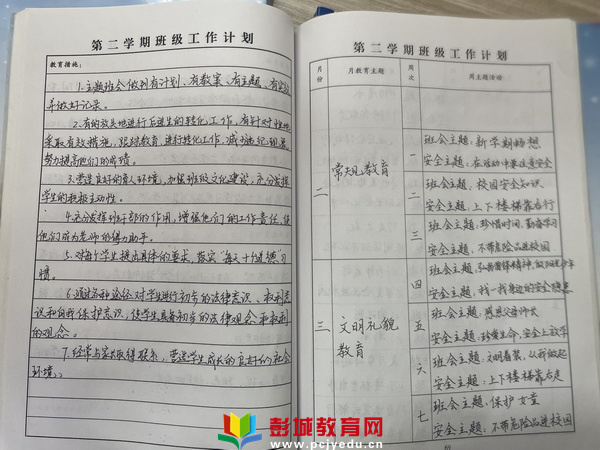 第二学期班级工作计划
教育措施:
1.主题班会做到有计划、有教案、有主题、有
并做好记录。
2.有的放矢地进行后进生的转化工作,有针对性地
采取有效措施,跟踪教育,进行转化工作,减少违纪现象,
努力提高他们的成绩。
3.营造良好的育人环境,加强班级文化建设,充分发挥
学生的积极主动性。
4.充分发挥班干部的作用,增强他们的工作责任,使
他们成为老师的得力助手。
5.对每个学生提出具体的要求,落实“每天十个好习
惯”
6.通过各种途径对学生进行初步的法律意识、权利意
识和自我保护意识,使学生具备初步的法律观念和权利
的观念。
7.经常与家长取得联系,营造学生成长的良好的社会
环境。
第二学期班级工作计划
月份 月教育主题 周次 周主题活动
二 常规教育
一 班会主题:新学期畅想
安全主题:在活动中要注意安全
二 班会主题:校园安全知识
安全主题:上下楼梯靠右行
三 班会主题:珍惜时间,勤奋学习
安全主题:不带危险品进校园
三 文明礼貌教育
四 班会主题:弘扬雷锋精神,
安全主题:找一找身边的安全隐患
五 班会主题:感恩父母师长
安全主题:珍爱生命,安全上放学
六 班会主题:文明着装,从我做起
安全主题:上下楼梯靠右走
七 班会主题:保护女童
安全主题:不带危险品进校园
彭城教育网
www.pcjyedu.cn